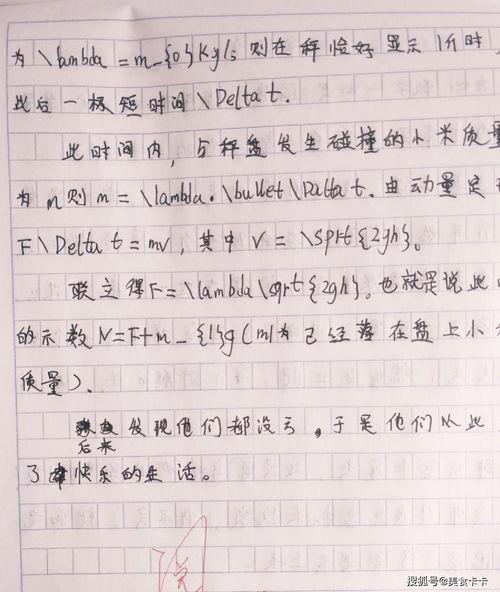 为\lambda=m_{0}Kg/s则在秤恰好显示1斤时
此后一极短时间\Delta t.
此时间内,与秤盘发生碰撞的小米质量
为m则m=\lambda.\bullet\Daltat.由动量定
F\Delta t=mv,其中V=\sprt{2gh}。
联立得F=\lambda\sqrt{2gh}。也就是说此
的示数N=F+m_{1}g(m1为已经落在盘上小
质量).
发现他们都没云,于是他们从此
后来
了快乐的生活。
搜狐号@美食卡卡